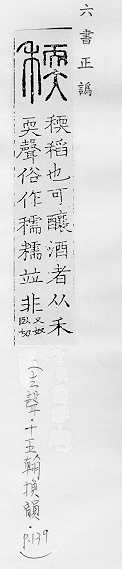 六書正譌
稬
稬稻也可釀酒者从禾
耎聲俗作穤糯竝非又奴臥切
(去聲·十五翰換韻·P.139